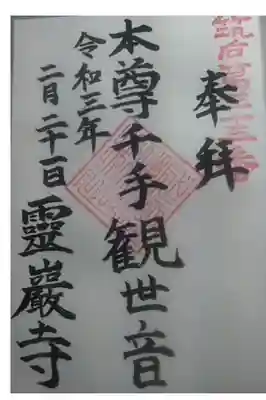 奉拝
本尊千手観世音
令和三年
二月二十一日
靈巖寺